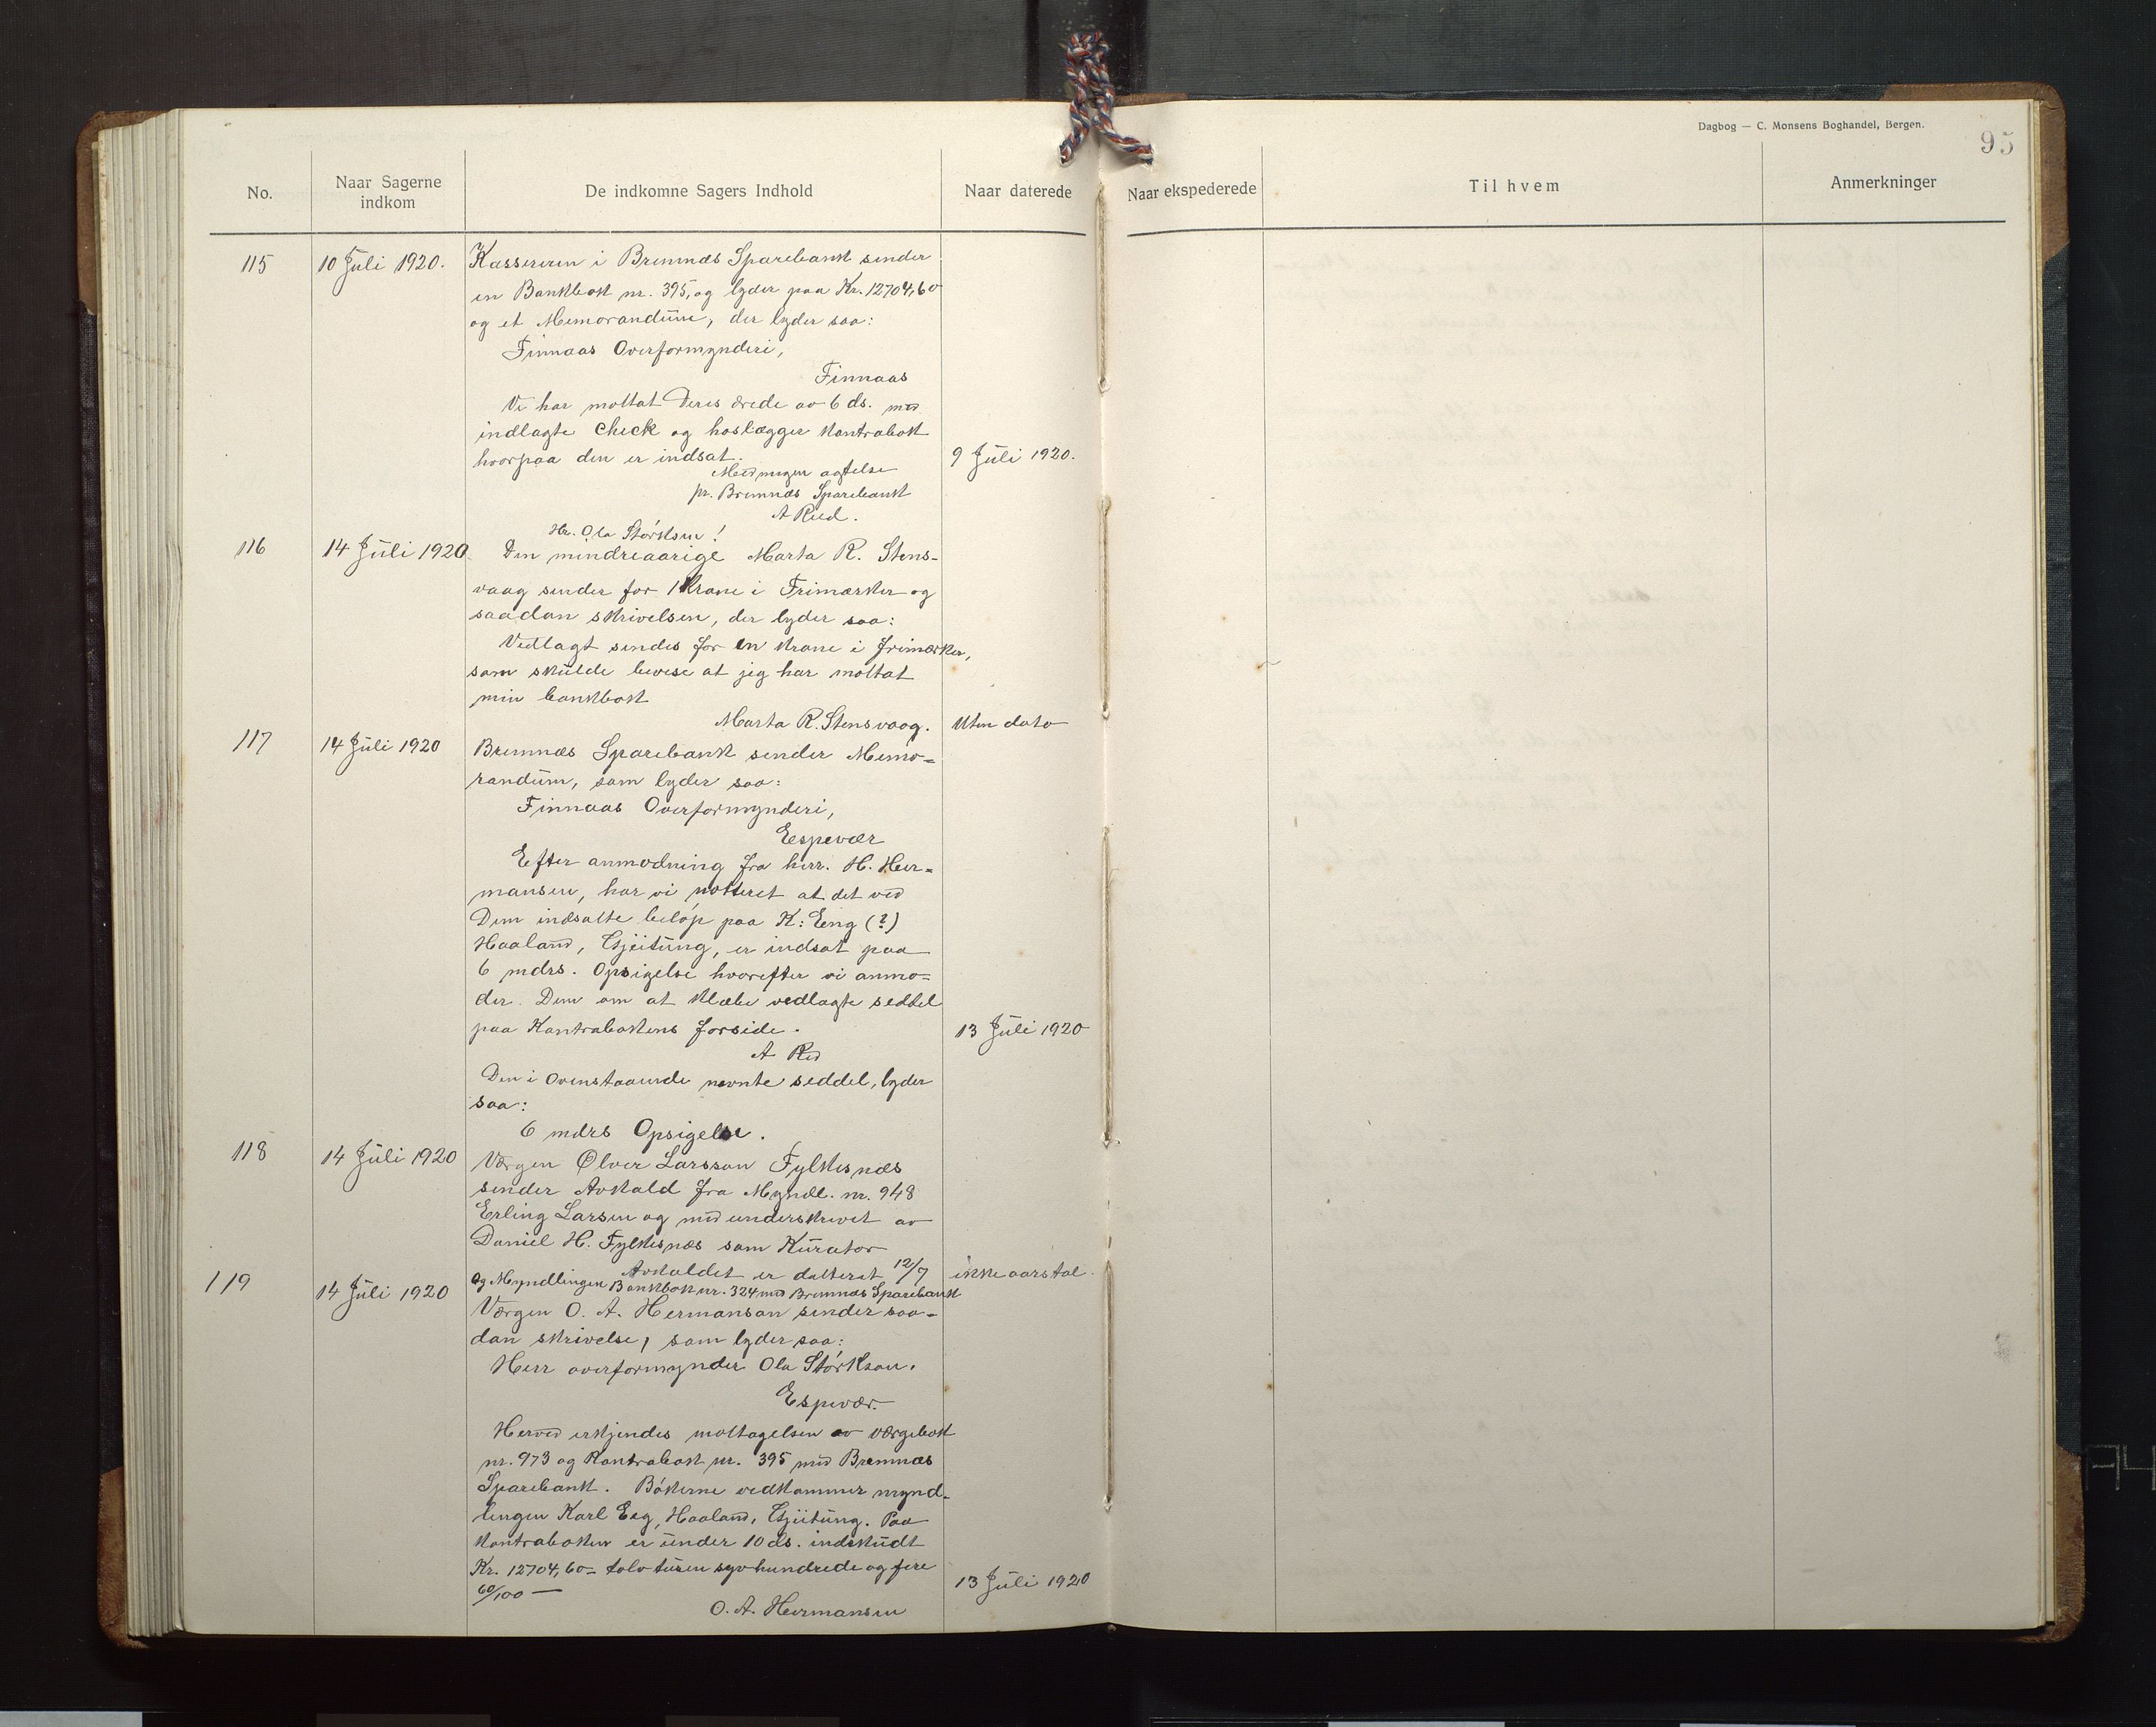 Dagbog — C. Monsens Boghandel, Bergen.
95
No.
Naar Sagerne indkom
De indkomne Sagers Indhold
Naar daterede
Naar ekspederede
Til hvem
Anmerkninger
115
10 Juli 1920.
Kassereren i Bremnæs Sparebank sender
en Bankbok nr. 395, og lyder paa Kr. 12704,60
og et Memorandum, der lyder saa:
Finnaas Overformynderi,
Finnaas
Vi har mottat Deres ærede av 6 ds. med
indlagte Check og hoslægger Kontrabok
hvorpaa den er indsat.
9 Juli 1920.
Med megen agtelse
pr. Bremnæs Sparebank
A Rud.
Hr. Ola Størkson!
116
14 Juli 1920.
Den mindreaarige Marta R. Stens-
vaag sender for 1 Krone i Frimærker og
saadan skrivelsen, der lyder saa:
Vedlagt sendes for en krone i frimærker,
som skulde bevise at jeg har mottat
min bankbok
Marta R. Stensvaag.
Uten dato
117
14 Juli 1920
Bremnæs Sparebank sender Memo-
randum, som lyder saa:
Finnaas Overformynderi,
Espevær
Efter anmodning fra herr. H. Her-
mansen, har vi notteret at det ved
Dem indsatte beløp paa K: Eeng (?)
Haaland, Gjeitung, er indsat paa
6 mdrs. Opsigelse hvorefter vi anmo-
der Dem om at klæbe vedlagte seddel
paa Kontrabokens forside.
13 Juli 1920
A Rud
Den i Ovenstaaende nevnte seddel, lyder
saa:
6 mdrs Opsigelse.
118
14 Juli 1920
Værgen Olver Larsson Fylkesnæs
sender Avkald fra Myndl. nr. 948
Erling Larsen og med underskrevet av
Daniel H. Fylkesnæs som Kurator
Avkaldet er datteret 12/7
ikke aarstal.
og Myndlingen Bankbok nr. 324 med Bremnæs Sparebank
119
14 Juli 1920
Værgen O. A. Hermanson sender saa-
dan skrivelse, som lyder saa:
Herr overformynder Ola Størkson.
Espevær.
Herved erkjendes mottagelsen av værgebok
nr. 973 og Kontrabok nr. 395 med Bremnæs
Sparebank. Bøkerne vedkommer mynd-
lingen Karl Eeg, Haaland, Gjeitung. Paa
Kontraboken er under 10 ds. indskudt
Kr. 12704,60 - tolv tusen syvhundrede og fire
60/100 —
13 Juli 1920
O. A. Hermansen